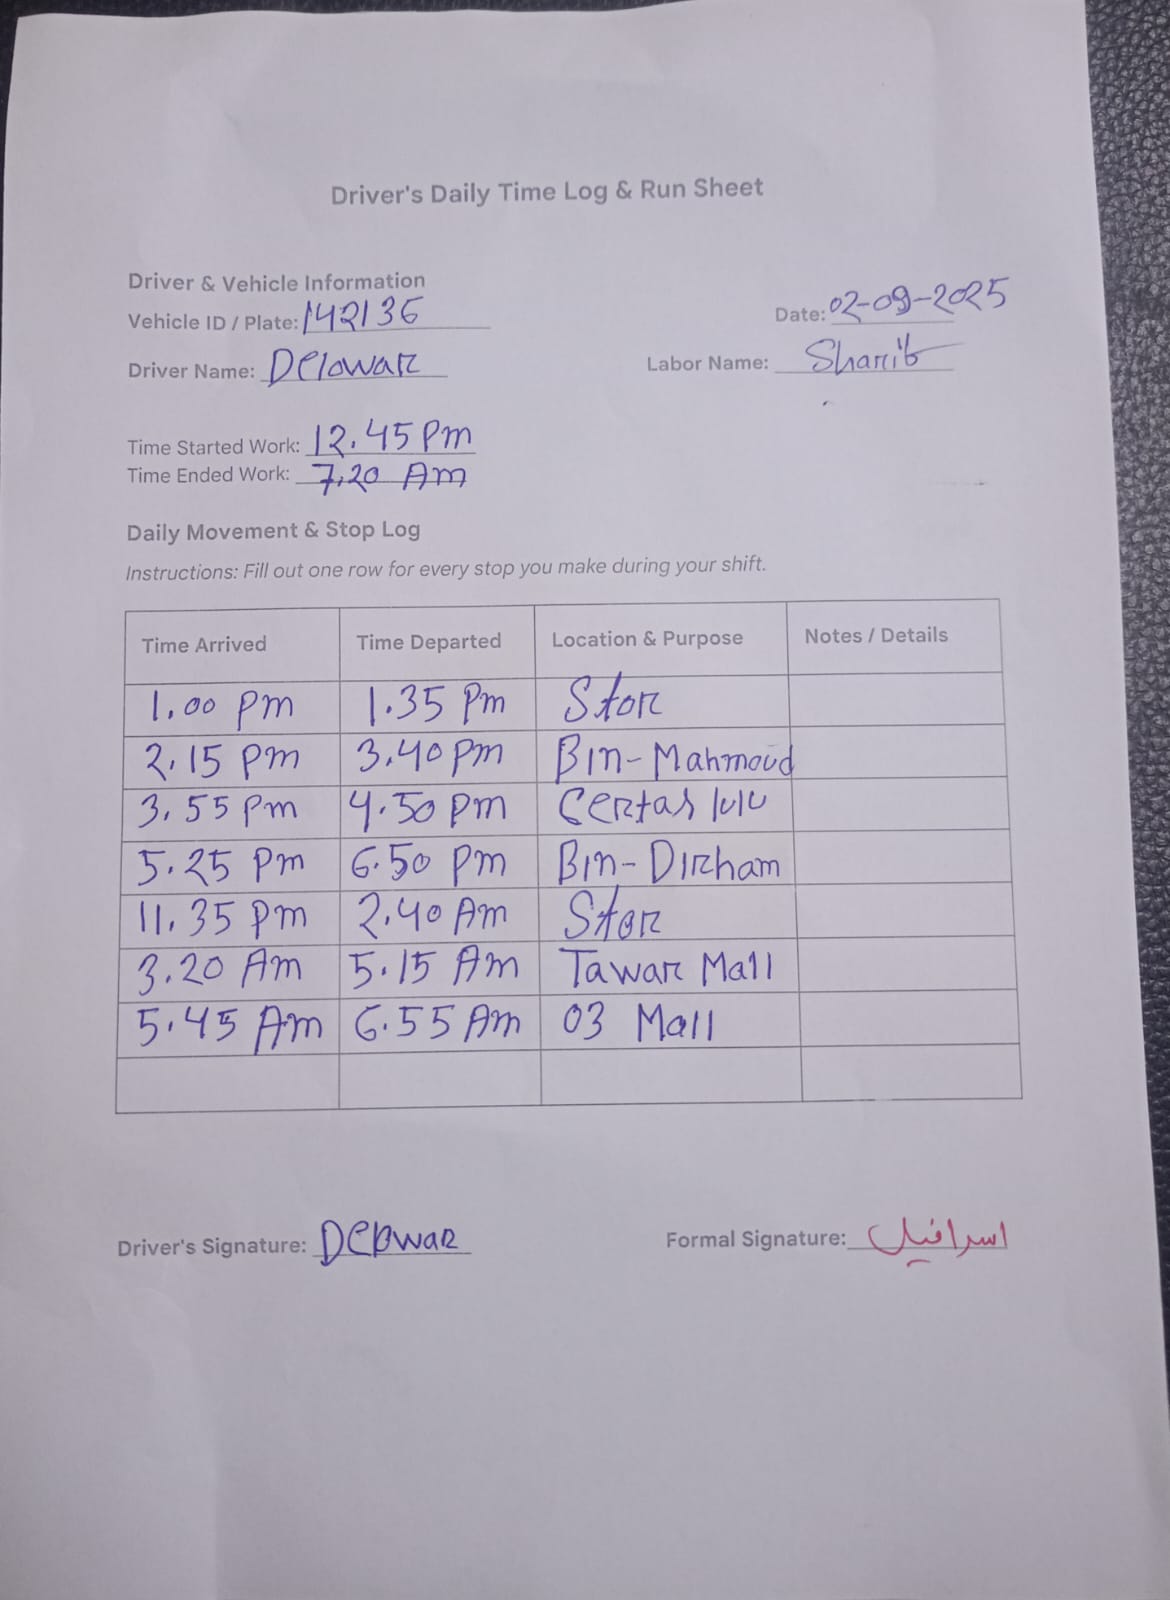 Driver's Daily Time Log & Run Sheet
Driver & Vehicle Information
Vehicle ID / Plate: 142136
Date: 02-09-2025
Driver Name: Delowar
Labor Name: Sharib
Time Started Work: 12.45 Pm
Time Ended Work: 7.20 Am
Daily Movement & Stop Log
Instructions: Fill out one row for every stop you make during your shift.
Time Arrived Time Departed Location & Purpose Notes / Details
1.00 Pm 1.35 Pm Stor
2.15 Pm 3.40 Pm Bin-Mahmoud
3.55 Pm 4.50 Pm Certas lulu
5.25 Pm 6.50 Pm Bin-Dirham
11.35 Pm 2.40 Am Stor
3.20 Am 5.15 Am Tawar Mall
5.45 Am 6.55 Am 03 Mall
Driver's Signature: Delowar
Formal Signature: اسرافيل